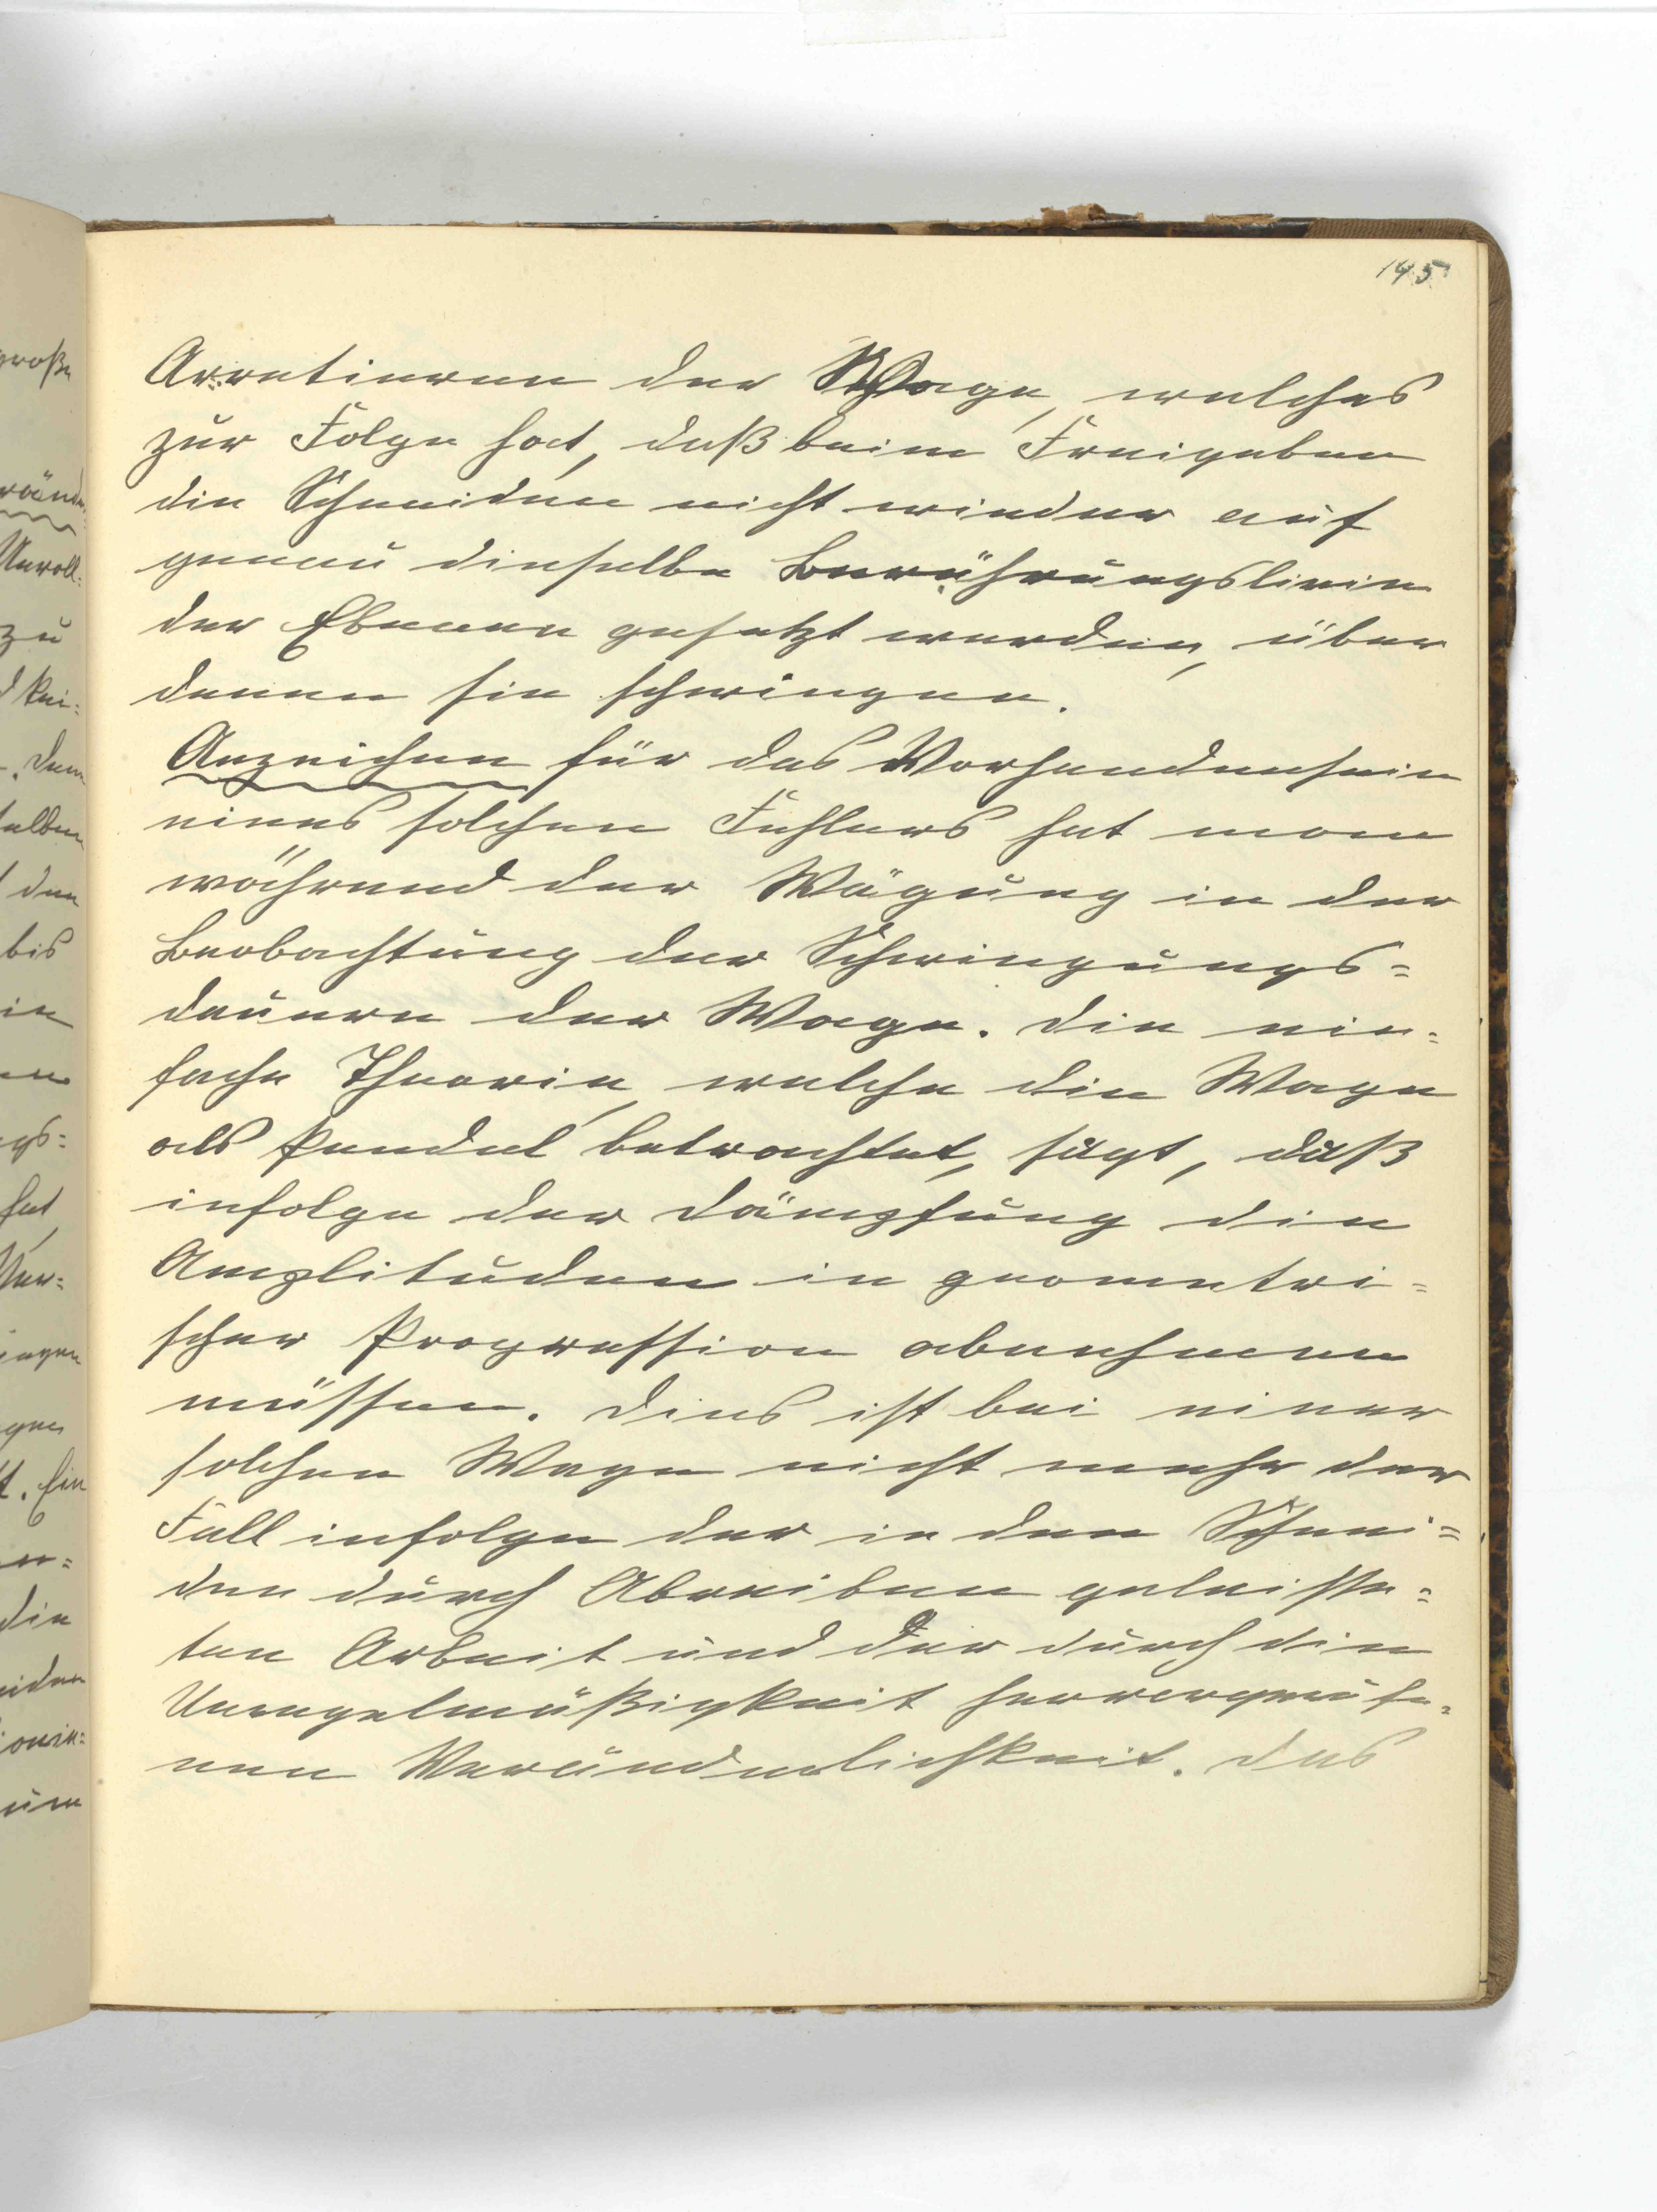 145
Arretieren der Wage, welches
zur Folge hat, daß beim Freigeben
die Schneiden nicht wieder auf
genau dieselbe Berührungslinie
der Ebenen gesetzt werden, über
denen sie schwingen.
Anzeichen für das Vorhandensein
eines solchen Fehlers hat man
während der Wägung in der
Beobachtung der Schwingungs=
dauern der Wage. Die ein=
fache Theorie, welche die Wage
als Pendel betrachtet, sagt, daß
infolge der Dämpfung die
Amplituden in geometri=
scher Progression abnehmen
müssen. Dies ist bei einer
solchen Wage nicht mehr der
Fall infolge der in den Schnei=
den durch Abreiben geleiste=
ten Arbeit und der durch die
Unregelmäßigkeit hervorgerufe=
nen Veränderlichkeit. Das